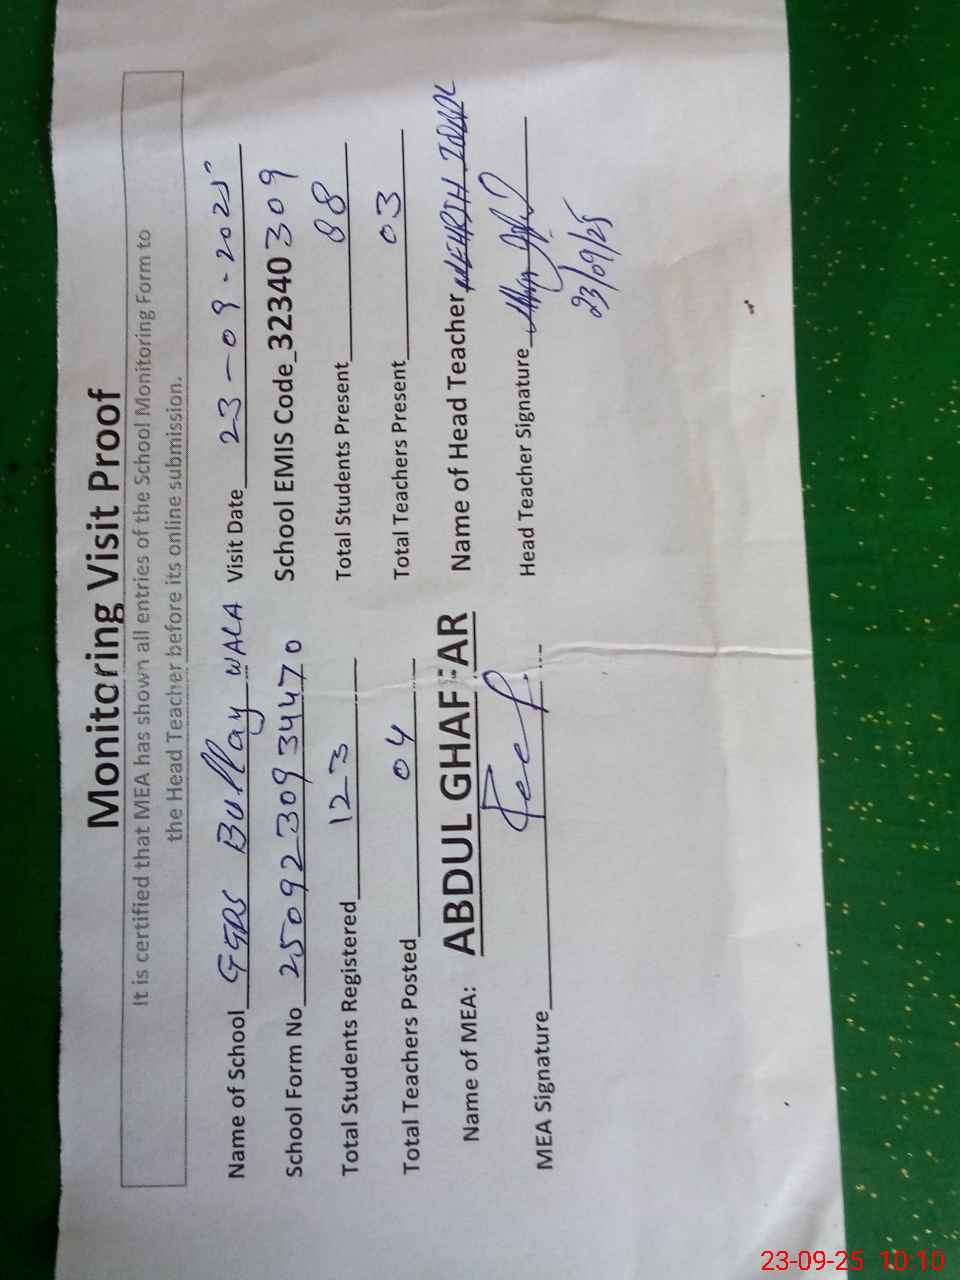 Monitoring Visit Proof
It is certified that MEA has shown all entries of the School Monitoring Form to
the Head Teacher before its online submission.
Name of School GGPS Bullay WALA Visit Date 23-09-2025
School Form No 2509230934470 School EMIS Code 32340309
Total Students Registered 123 Total Students Present 88
Total Teachers Posted 04 Total Teachers Present 03
Name of MEA: ABDUL GHAFFAR Name of Head Teacher
MEA Signature Head Teacher Signature
23/09/25
23-09-25 10:10